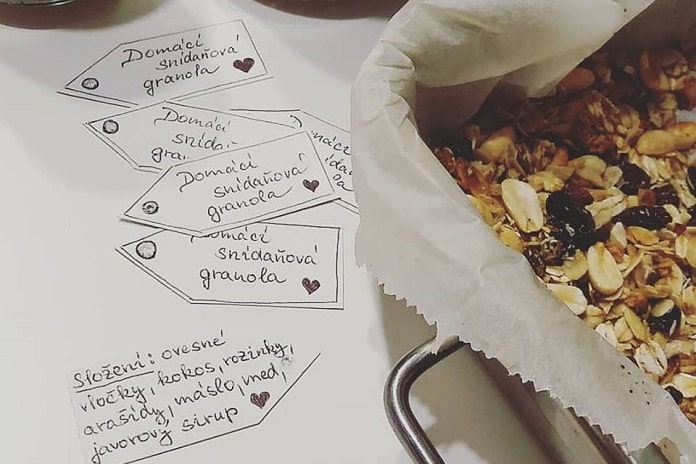 Domácí
snídaňová
granola
Domácí
snída
gra
Domácí
snídaňová
granola
Domácí
snídaňová
granola
Složení: ovesné
vločky, kokos, rozinky,
arašídy, máslo, med,
javorový sirup